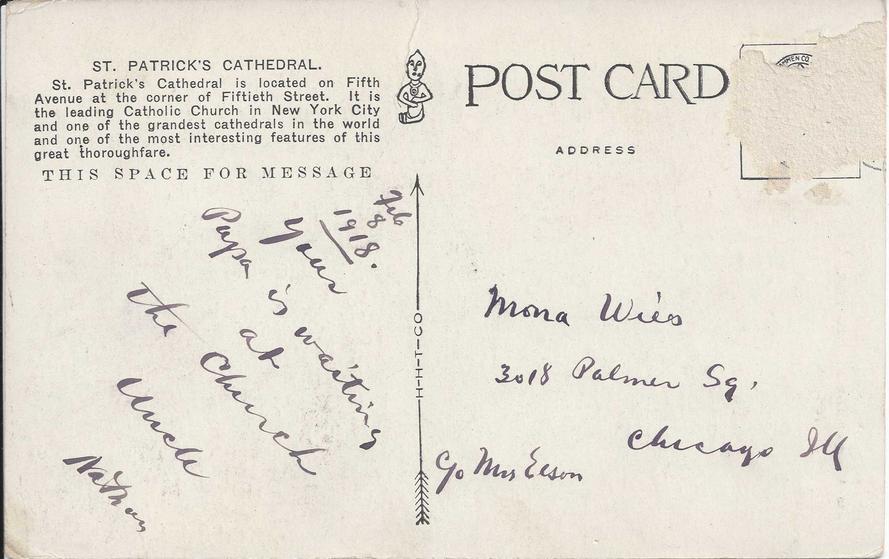 ST. PATRICK'S CATHEDRAL.
St. Patrick's Cathedral is located on Fifth
Avenue at the corner of Fiftieth Street. It is
the leading Catholic Church in New York City
and one of the grandest cathedrals in the world
and one of the most interesting features of this
great thoroughfare.
THIS SPACE FOR MESSAGE
Feb
8
1918.
Your
Papa is waiting
at
the Church
Uncle
Nathan
H-H-T-CO
POST CARD
ADDRESS
Mona Wies
3018 Palmer Sq.
Chicago Ill
c/o Mrs Elson